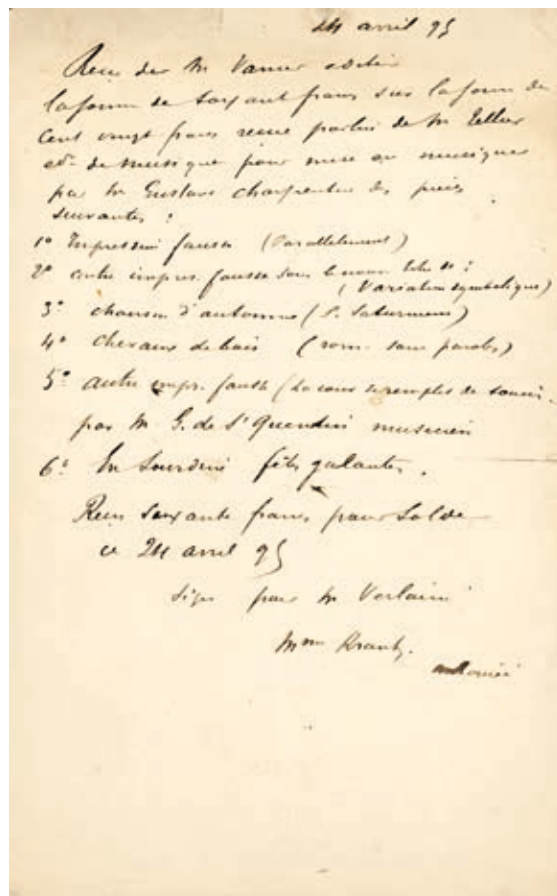 24 avril 95
Reçu de M Vanier editeur
la somme de soixant francs sur la somme de
cent vingt francs reçue par lui de M Tellier
edr de musique pour mise en musique
par M Gustave Charpentier des pièces
suivantes :
1º Impression fausse (Parallelement)
2º autre impres. fausse sous le nouveau titre de :
(Variation symbolique)
3º chanson d'automne (P. Saturniens)
4º chevaux de bois (rom. sans paroles)
5º autre impr. fausse (La cour se remplit de souci
par M G. de St Quentin musicien
6º En Sourdine fêtes galantes.
Reçu soixante francs pour solde
ce 24 avril 95
signé pour M Verlaine
Mme Krantz.